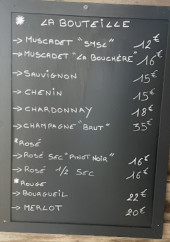 * LA BOUTEILLE
→ MUSCADET "SMSL" 12€
→ MUSCADET "LA BOUCHÈRE" 16€
→ SAUVIGNON 15€
→ CHENIN 15€
→ CHARDONNAY 18€
→ CHAMPAGNE "BRUT" 35€
* ROSÉ
→ ROSÉ SEC "PINOT NOIR" 16€
→ ROSÉ 1/2 SEC 16€
* ROUGE
→ BOURGUEIL 22€
→ MERLOT 20€